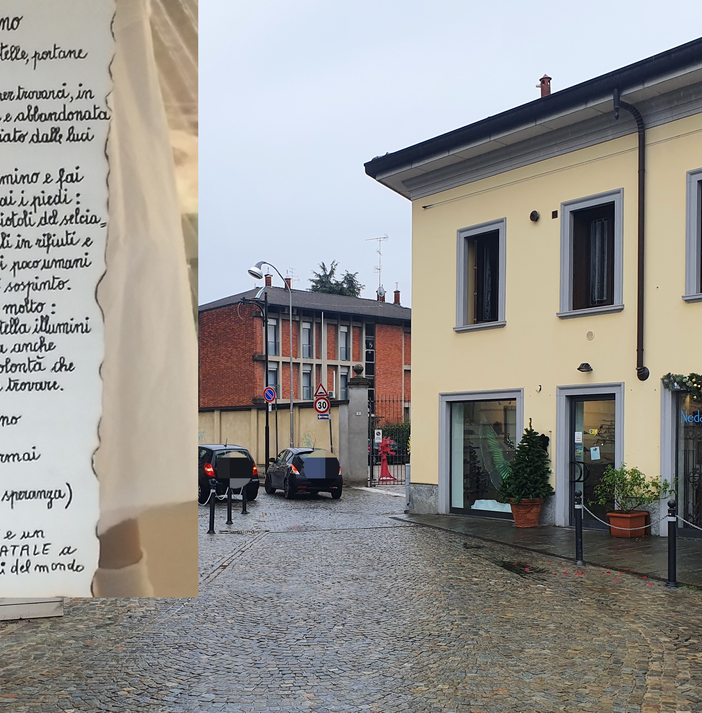 no
telle, portane
per trovarci, in
e abbandonata
iato dalle luci
mino e fai
ai i piedi:
iotoli del selcia=
li in rifiuti e
i poco umani
sospinto.
molto:
tella illumini
anche
olontà che
trovare.
no
rmai
speranza)
e un
ATALE a
i del mondo
30
Neda